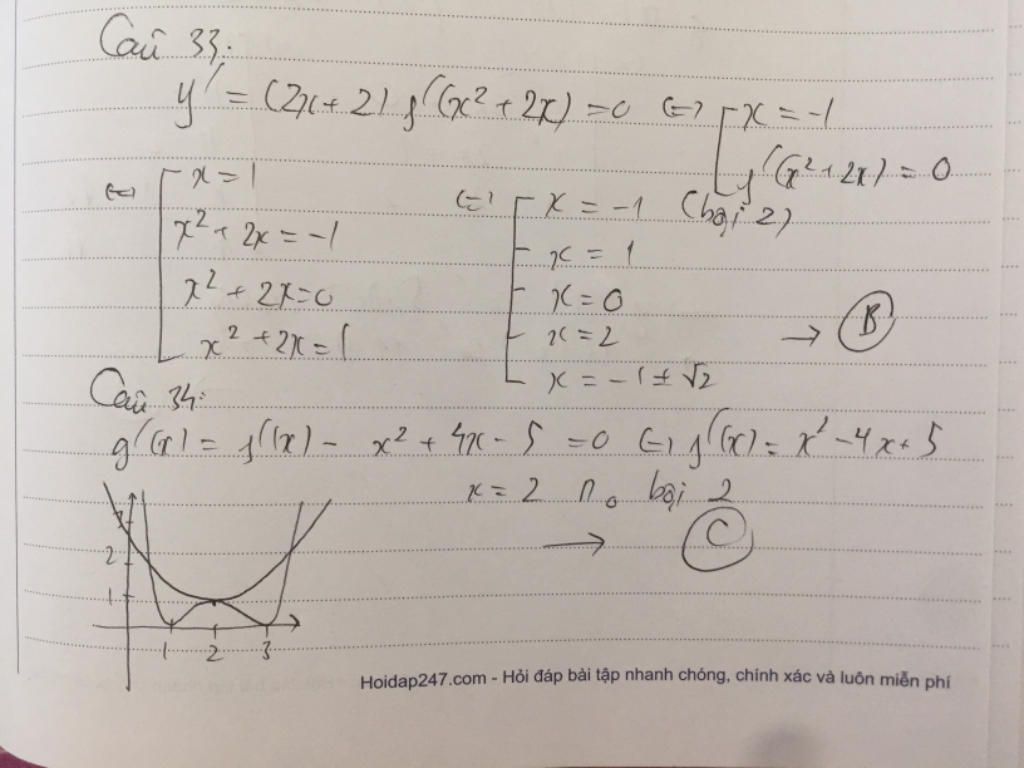 Câu 33:
y' = (2x + 2) f'(x² + 2x) = 0 (=) [ x = -1
f'(x² + 2x) = 0
(=) [ x = 1
x² + 2x = -1
x² + 2x = 0
x² + 2x = 1
(=) [ x = -1 (bội 2)
x = 1
x = 0
x = 2
x = -1 ± √2
→ B
Câu 34:
g'(x) = f'(x) - x² + 4x - 5 = 0 (=) f'(x) = x² - 4x + 5
x = 2 no bội 2
→ C
3
2
1
1 2 3
Hoidap247.com - Hỏi đáp bài tập nhanh chóng, chính xác và luôn miễn phí